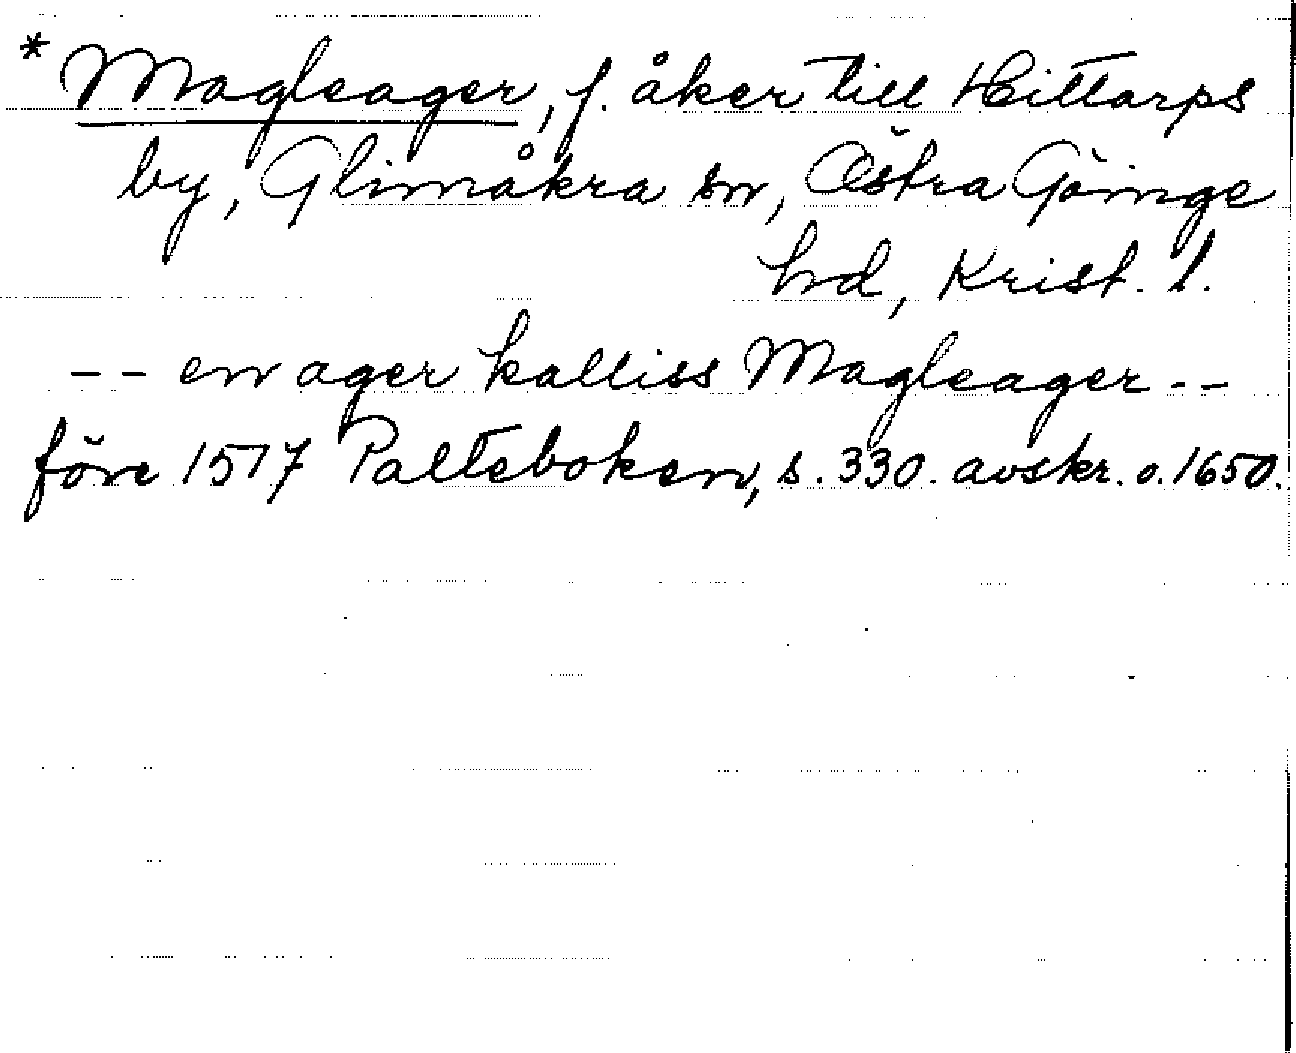 * Magleager, f. åker till Hittarps
by, Glimåkra sn, Östra Göinge
hd, Krist. l.
-- en ager kalliss Magleager --
före 1517 Palteboken, s. 330. avskr. o. 1650.